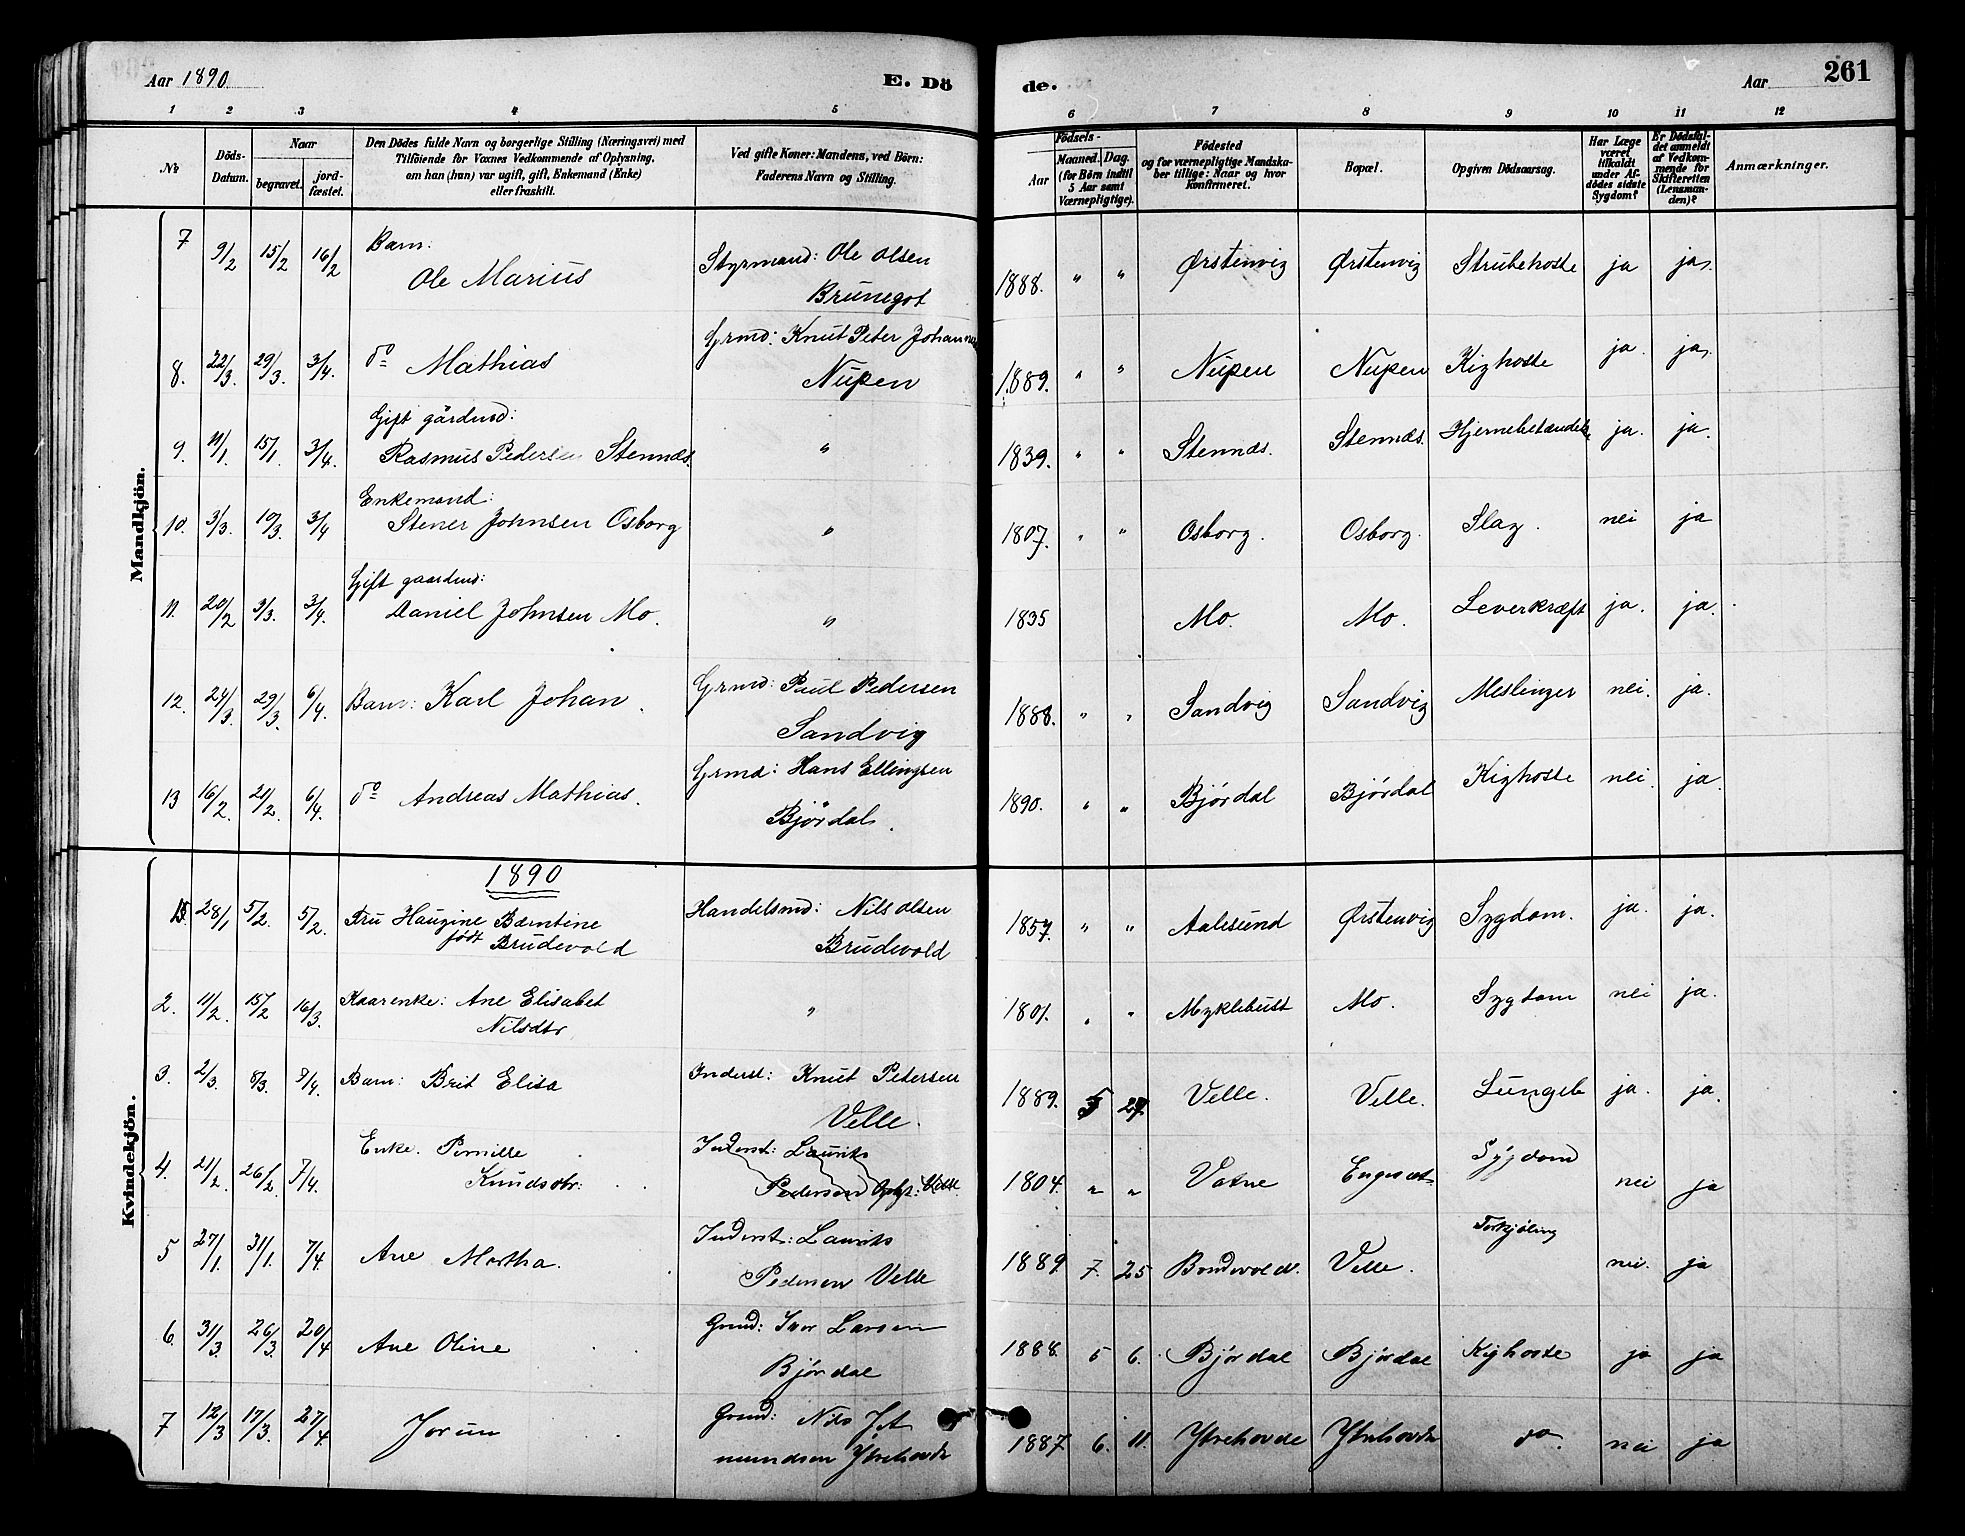 Aar 1890.
E. Dö
de.
Aar
261
1 2 3 4 5 6 7 8 9 10 11 12
No
Döds-Datum.
Naar
begravet.
jord-fæstet.
Den Dödes fulde Navn og borgerlige Stilling (Næringsvei) med
Tilföiende for Voxnes Vedkommende af Oplysning,
om han (hun) var ugift, gift, Enkemand (Enke)
eller fraskilt.
Ved gifte Koner: Mandens, ved Börn:
Faderens Navn og Stilling.
Födsels-
Aar
Maaned. Dag.
(for Börn indtil
5 Aar samt
Værnepligtige).
Födested
og for værnepligtige Mandska-
ber tillige: Naar og hvor
konfirmeret.
Bopæl.
Opgiven Dödsaarsag.
Har Læge
været
tilkaldt
under Af-
dödes sidste
Sygdom?
Er Dödsfal-
det anmeldt
af Vedkom-
mende for
Skifteretten
(Lensman-
den)?
Anmærkninger.
Mandkjön.
7 9/2 15/2 16/2 Barn:
Ole Marius
Styrmand: Ole Olsen
Brunegot
1888. " " Ørstenvig Ørstenvig Strubehoste ja ja.
8. 22/3. 29/3. 3/4. do Mathias
Grmd: Knut Peter
Nupen
1889. " " Nupen Nupen Kighoste ja. ja.
9. 11/1. 15/1. 3/4. Gift gårdmd:
Rasmus Pedersen Stennæs.
"
1839. " " Stennæs. Stennæs. Hjernebetændelse ja. ja.
10. 3/3. 10/3. 3/4 Enkemand:
Stener Johnsen Osborg
"
1807. " " Osborg. Osborg. Slag. nei ja
11. 20/2 3/3. 3/4. Gift gaardmd:
Daniel Johnsen Mo.
"
1835 Mo. Mo. Leverkræft ja. ja.
12. 24/3. 29/3. 6/4. Barn: Karl Johan.
Grmd: Paul Pedersen
Sandvig
1888. " " Sandvig Sandvig Meslinger nei. ja.
13 16/2. 21/2. 6/4. do Andreas Mathias.
Grmd: Hans Ellingsen
Bjørdal.
1890. " " Bjørdal Bjørdal Kighoste nei. ja.
Kvindekjön.
1890
28/1 5/2. 5/2. Fru Haugine Bærntine
født Brudevold
Handelsmd: Nils Olsen
Brudevold
1857. " " Aalesund Ørstenvig Sygdom. ja. ja.
2. 11/2. 15/2 16/3. Kaarenke: Ane Elisabet
Nilsdtr
"
1801. " " Myklebust Mo. Sygdom nei ja.
3. 2/3. 8/3. 7/4 Barn: Brit Elisa
Inderst: Knut Pedersen
Velle.
1889. 5 Velle. Velle. Lungeb ja. ja.
4. 21/2. 26/2. 7/4. Enke. Pernille
Knudsdtr:
Inderst: Laurits
Pedersen Velle.
1804. " " Vatne Engeset Sygdom nei ja
5 27/1. 31/1. 7/4. Ane Martha.
Inderst: Laurits
Pedersen Velle
1889. 7. 25 Bondevold. Velle. Forkjøling nei. ja
6. 31/3. 26/3. 20/4 Ane Oline
Grmd: Iver Larsen
Bjørdal
1888. 5 6. Bjørdal Bjørdal Kighoste ja ja
7 12/3 17/3. 27/4. Jorun
Grmd: Nils Jet
mundsen Ytrehovde
1887. 6. 11. Ytrehovde Ytrehovde do. nei ja